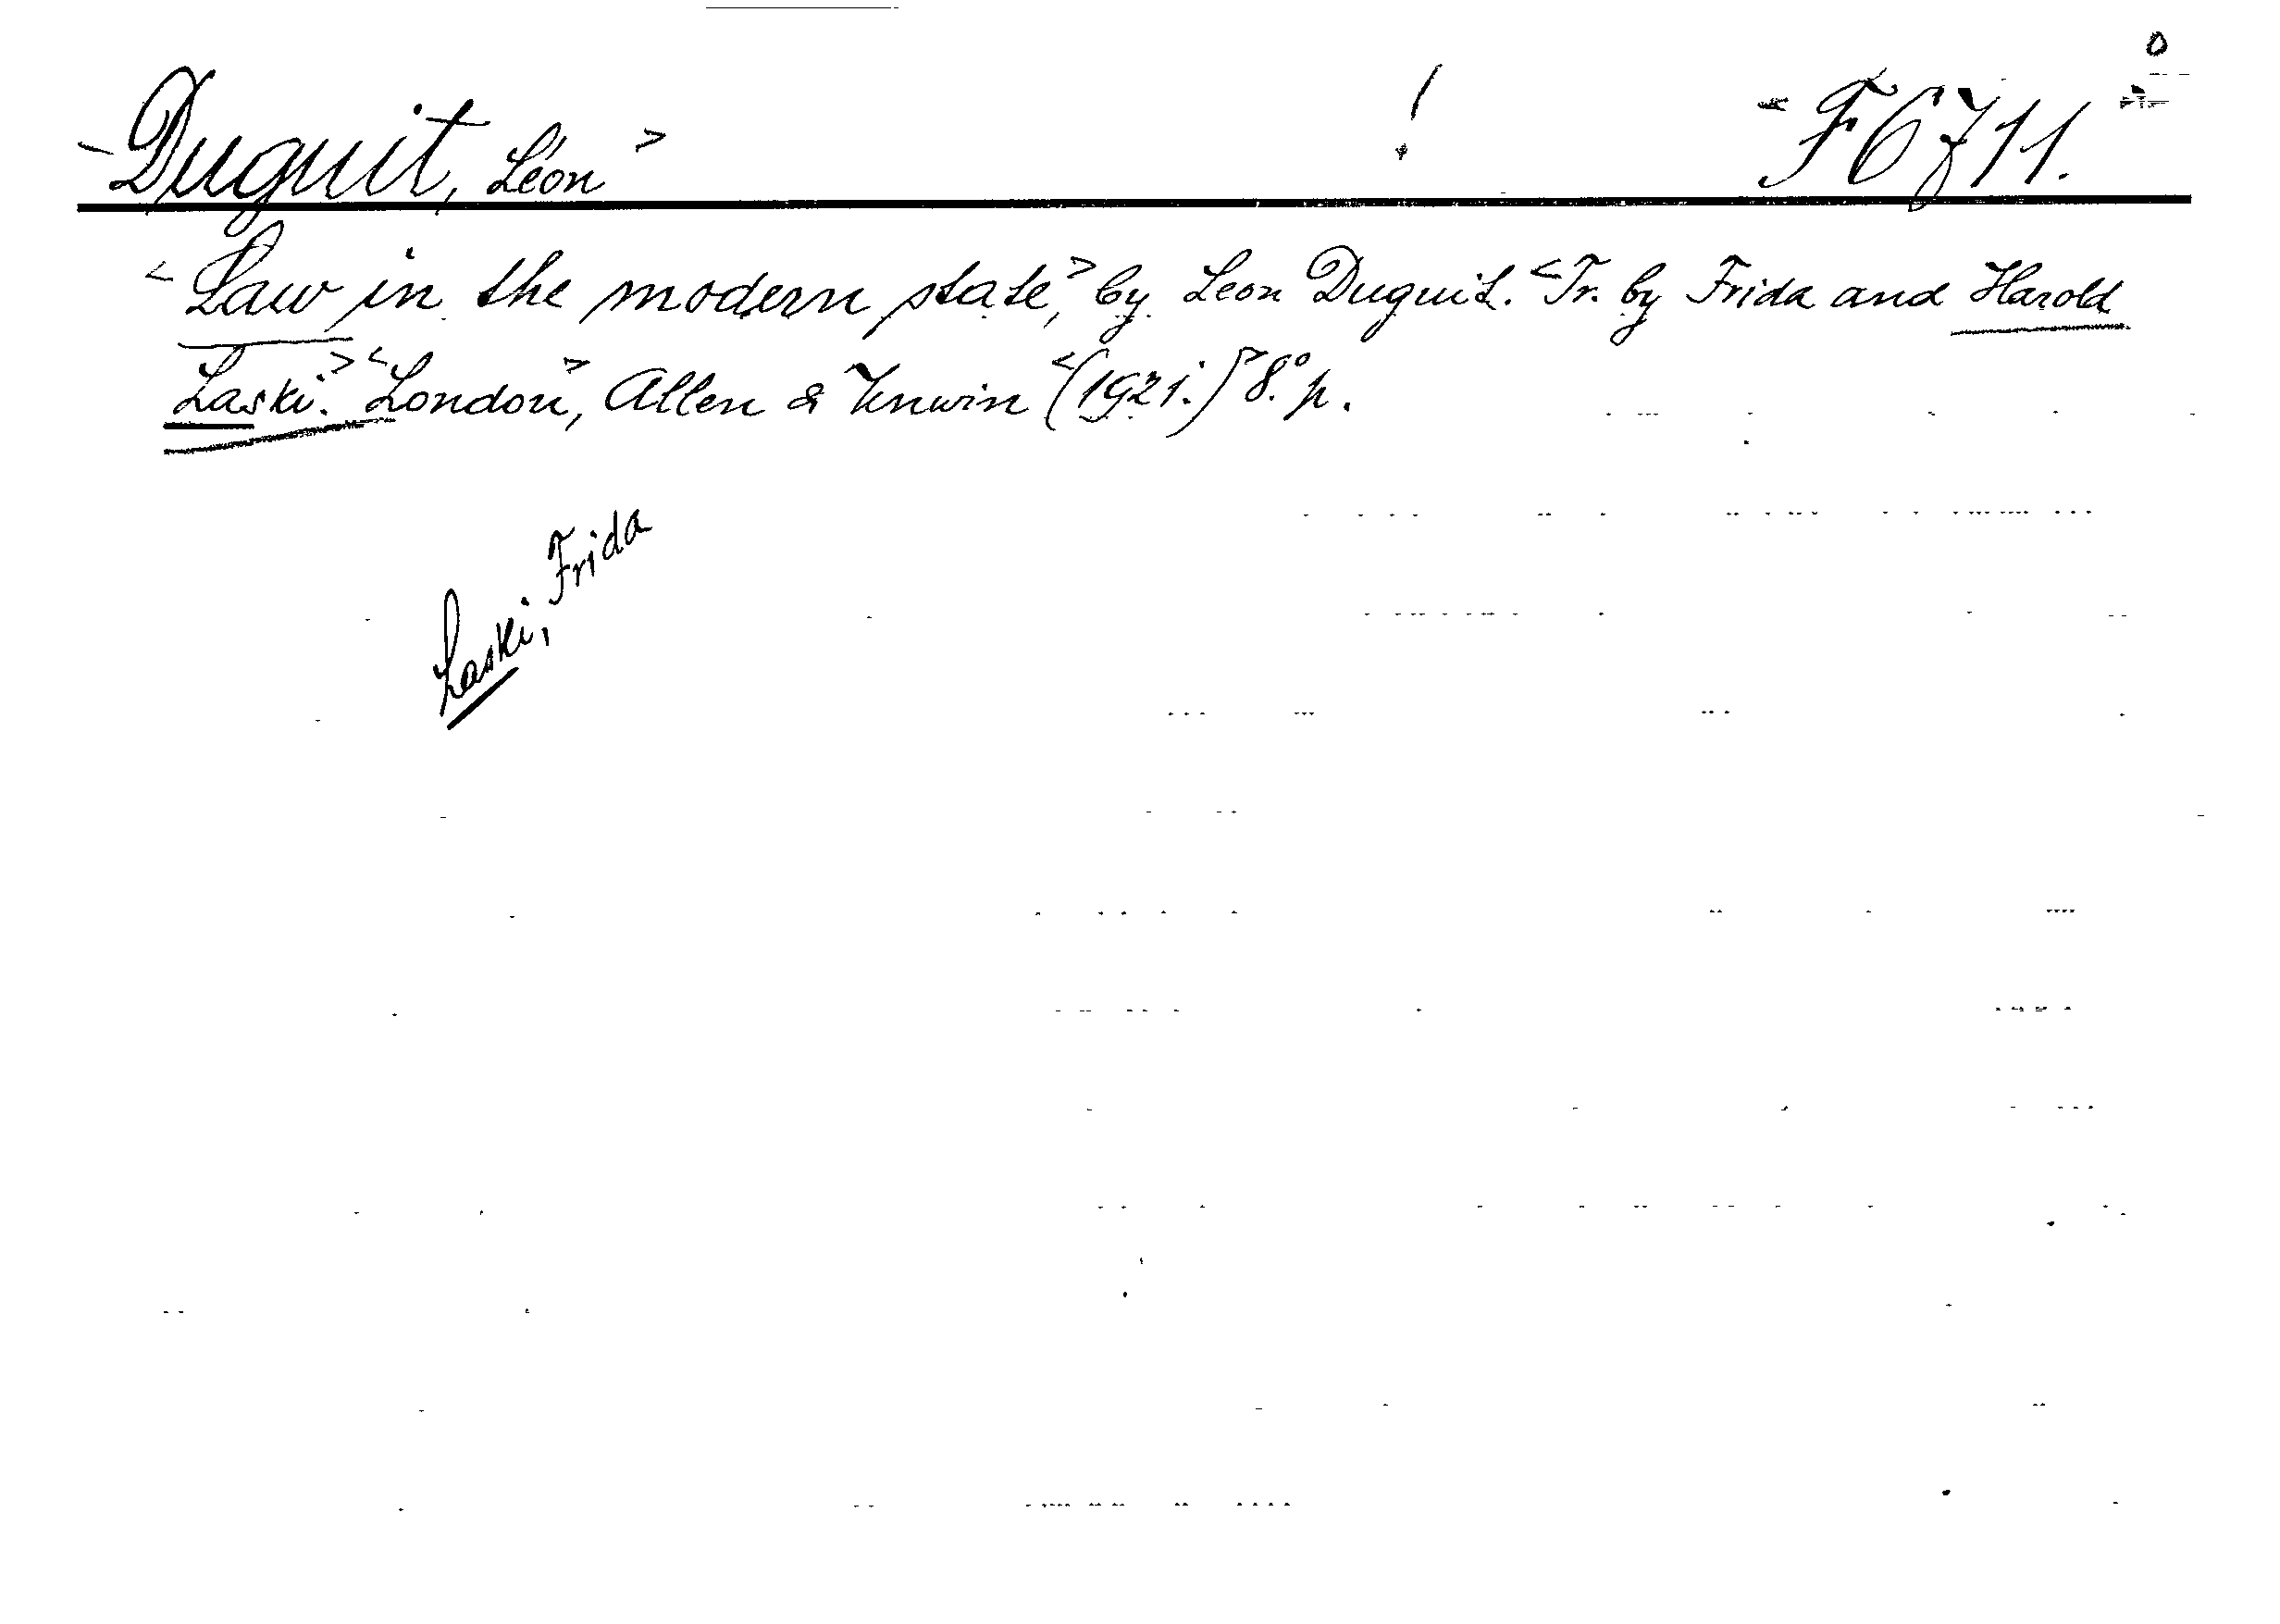 <Duguit, Léon> ! <F6711.>
<Law in the modern state,> by Leon Duguit. <Tr. by Frida and Harold
Laski.> <London>, Allen & Unwin <(1921.)> 8.° p.
Laski, Frida